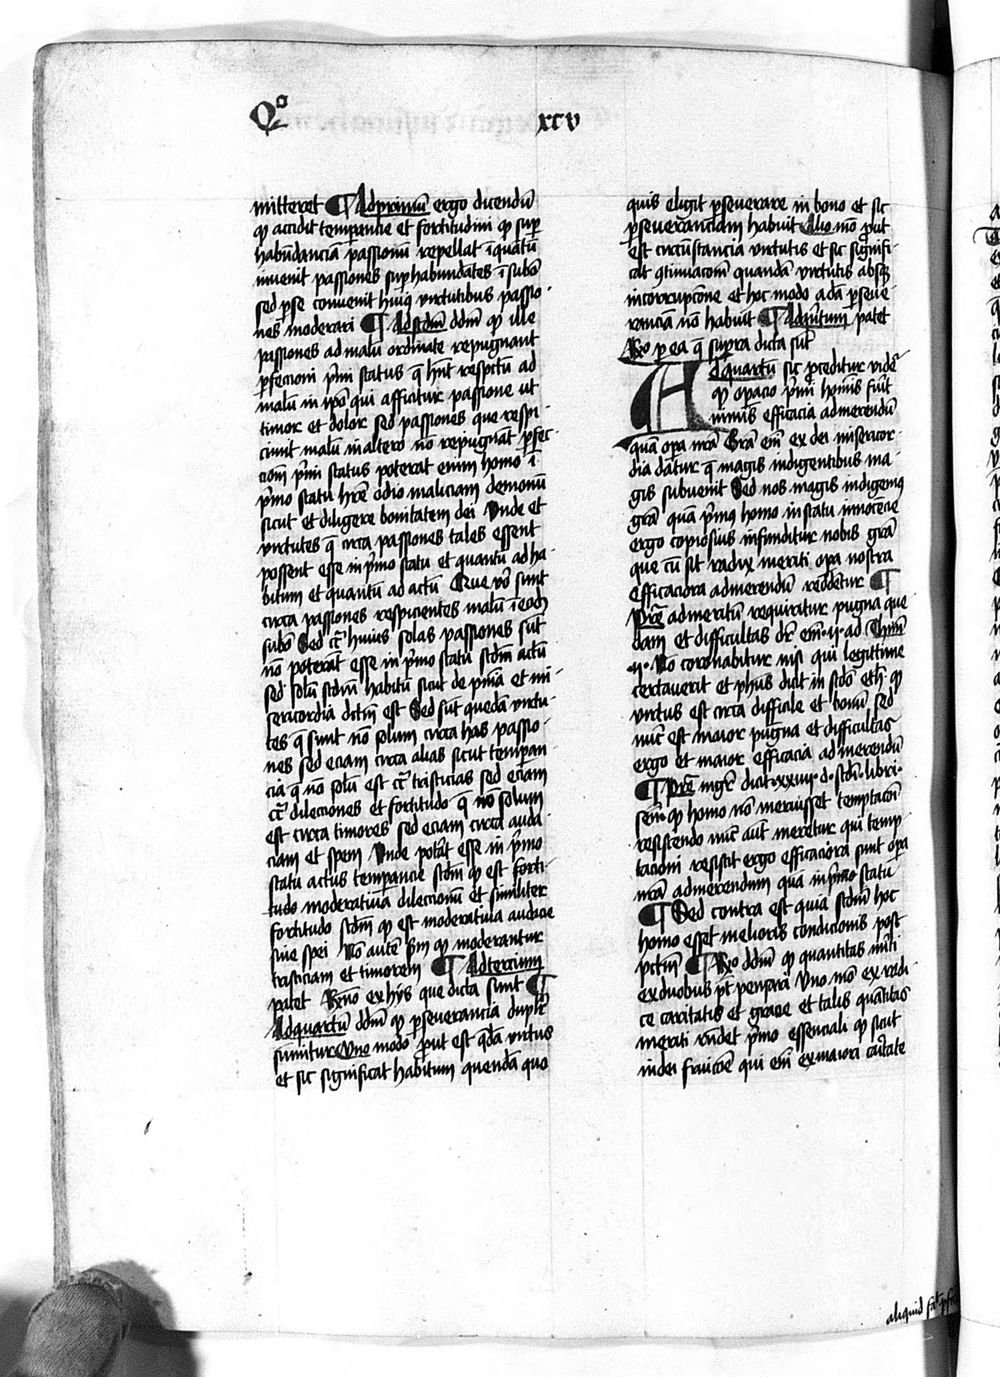 Qo xcv
mitteret ¶ Ad primū ergo dicendū
qp accidit temperantie et fortitudini qp sup
habūdanciā passionū repellat īquātū
invenit passiones suphabundātes ī subō
sed p se convenit huiꝯ virtutibus passio-
nes moderari ¶ Ad scdm̄ dd̄m qp ille
passiones ad malū ordinate repugnant
pfectioni pmi status q̄ hn̄t respectū ad
malū in ipso qui afficitur passione ut
timor et dolor sed passiones que respi-
ciunt malū in altero nō repugnāt pfec-
cōni pmi status poterat enim homo ī
pmo statu hr̄e odio maliciam demonū
sicut et diligere bonitatem dei Unde et
virtutes q̄ circa passiones tales essent
possent esse in pmo statu et quantū ad ha-
bitum et quantū ad actū Que vo sunt
circa passiones respicientes malū ī eodē
subō Sed cc̄ huius solas passiones sūt
nō poterāt esse in pmo statu scdm̄ actū
sed solū scdm̄ habitū sicut de pnīa et mi-
sericordia dictū est Sed sūt quedā virtu-
tes q̄ sunt nō solum circa has passio-
nes sed eciam circa alias sicut temperan-
cia q̄ nō solū est cc̄ tristicias sed eciam
cc̄ dilectiones et fortitudo q̄ nō solum
est circa timores sed eciam circa auda-
ciam et spem Unde potāt esse in pmo
statu actus temperancie scdm̄ qp est forti-
tudo moderativa dilectionū et similiter
fortitudo scdm̄ qp est moderativa audacie
sive spei Nō autē scdm qp moderantur
tristiciam et timorem ¶ Ad tercium
patet Rn̄o ex hijs que dicta sunt ¶
Ad quartū dd̄m qp pseverancia duplr̄
sumitur Uno modo put est qdā virtus
et sic significat habitum quendā quo
quis eligit pseverare in bono et sic
pseveranciam habuit Alio mō put
est circūstancia virtutis et sic signifi-
cat ꝯtinuacōem quandā virtutis absqꝫ
interrupcōne et hoc modo adā pseve-
ranciā nō habuit ¶ Ad quītum patet
Rō p ea q̄ supra dicta sūt
Ad quartū sic pceditur vidē
qp opacio pmi homīs fuīt
minus efficacia ad merendū
quā opa nrā Grā enī ex dei misericor-
dia datur q̄ magis indigentibus ma-
gis subvenit Sed nos magis indigemꝯ
grā quā pmꝯ homo in statu innocēcie
ergo copiosius infunditur nobis grā
que cū sit radix meriti opa nostra
efficaciora ad merendū redd̄etur ¶
Prē ad meritū requiratur pugna que
dam et difficultas dr̄ enī ·ii· ad Thim
·ii· Nō coronabitur nisi qui legittime
certaverit et phūs dicit in scdō eth qp
virtus est circa difficile et bonū sed
nūc est maior pugna et difficultas
ergo et maior efficacia ad merendū
¶ Prē mgr̄ dicit xxiiii d· scdi libri
sen̄ qp homo nō meruisset temptacōi
resistendo nūc aūt meretur qui temp-
tacioni resistit ergo efficaciora sunt opa
nrā ad merendum quā in pmo statu
¶ Sed contra est quia scdm̄ hoc
homo esset melioris condicionis post
pctm̄ ¶ Rō dd̄m qp quantitas mīti
ex duobus pt̄ pensari Uno mō ex radi-
ce caritatis et gracie et talis quātitas
meriti rn̄det pmo essenciali qp sicut
in dei fruicōe qui enī ex maiori caritate
aliquid